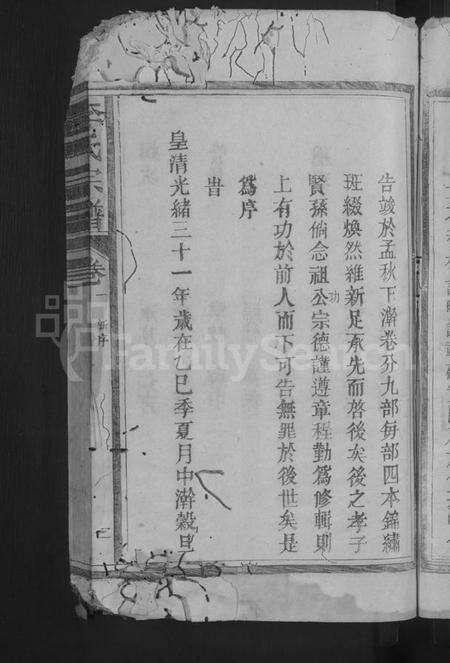 告竣於孟秋下澣卷分九部每部四本錦繡
班綴煥然維新足承先而啓後矣後之孝子
賢孫倘念祖功公宗德謹遵章程勤爲修輯則
上有功於前人而下可告無罪於後世矣是
爲序
旹
皇清光緒三十一年歲在乙巳季夏月中澣穀旦
李氏宗譜 卷一 新序
FamilySearch